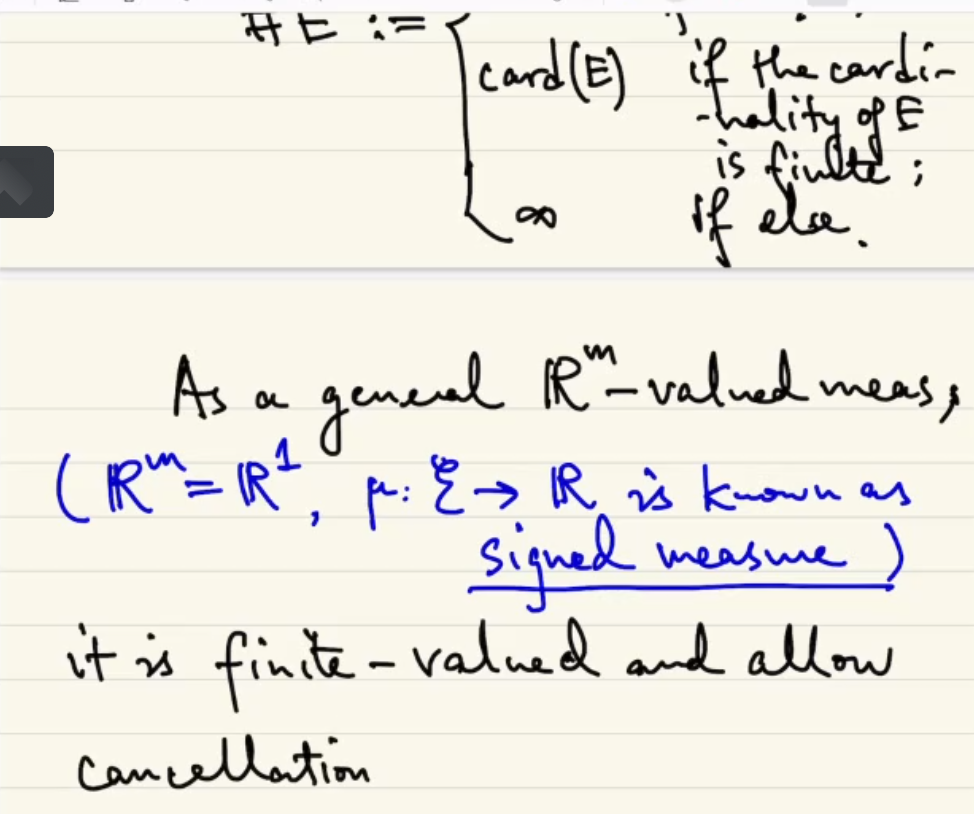 # E :=
card(E) if the cardi-
-nality of E
is finite ;
∞ if else.
As a general ℝᵐ-valued meas,
(ℝᵐ = ℝ¹, μ: ξ → ℝ is known as
signed measure)
it is finite-valued and allow
cancellation